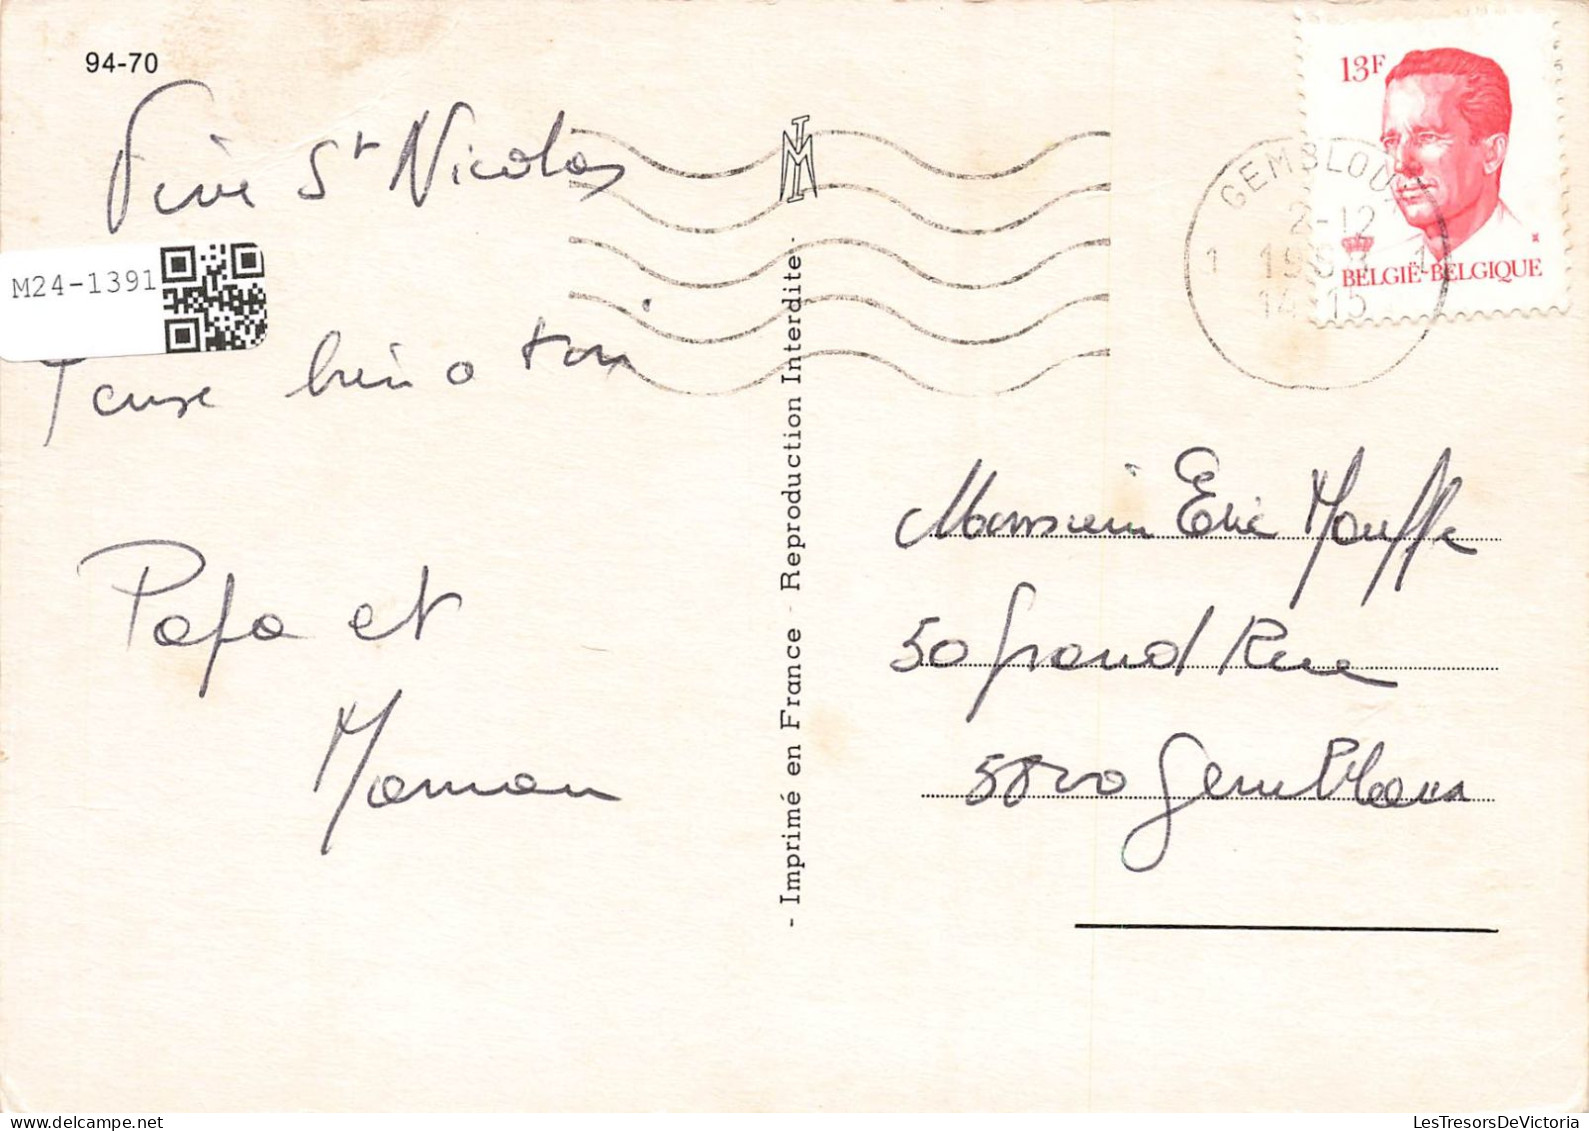 94-70
Vive St Nicolas
M24-1391
Pense bien a toi
Papa et
Maman
- Imprimé en France - Reproduction Interdite -
13F
BELGIË-BELGIQUE
GEMBLOUX
2-12
1 198 1
14-15
Monsieur Eric Mouffe
50 grand Rue
5800 Gembloux
LesTresorsDeVictoria